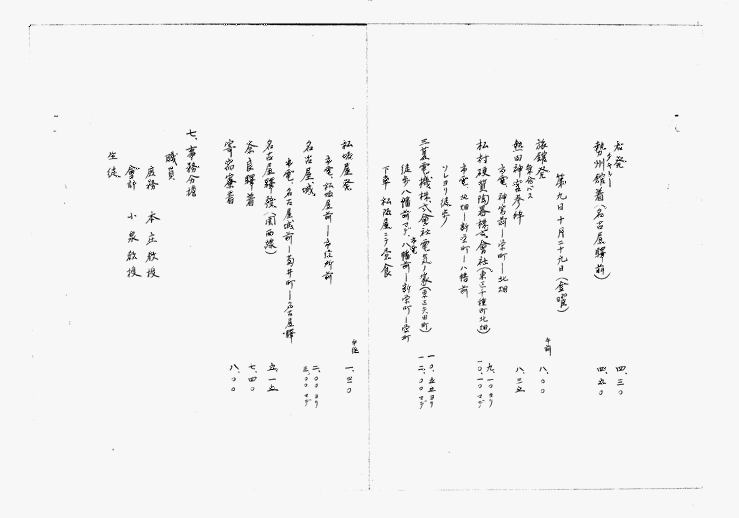 右発 四、三〇
タクシー
勢州館着(名古屋驛前) 四、五〇
第九日 十月二十九日(金曜)
旅館発 午前 八、〇〇
熱田神宮参拝 八、三五
市電、神宮前ー栄町ー北畑
松村硬質陶器株式會社(東区千種町北畑) 九、一〇ヨリ 一〇、一〇マデ
市電、北畑ー新栄町ー八幡前
ソレヨリ徒歩
三菱電機株式會社電気ノ家(東区矢田町) 一〇、五五ヨリ 一二、〇〇マデ
徒歩八幡前マデ、市電八幡前ー新栄町ー栄町
下車 松坂屋ニテ昼食
松坂屋発 午後 一、三〇
市電、松坂屋前ー市役所前
名古屋城 二、〇〇ヨリ 三、〇〇マデ
市電、名古屋城前ー菊井町ー名古屋驛
名古屋驛発(関西線) 五、一五
奈良驛着 七、四〇
寄宿寮着 八、〇〇
七、事務分擔
職員
庶務 本庄教授
會計 小泉教授
生徒